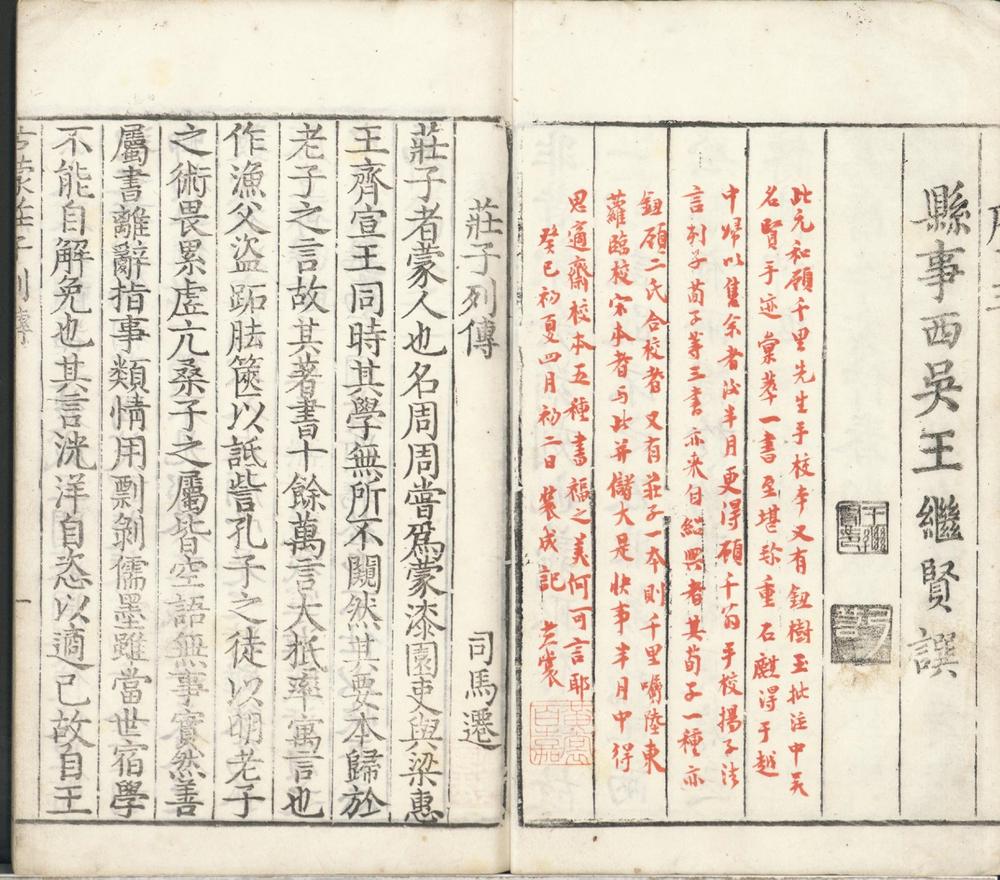 縣事西吳王繼賢譔
此元和顧千里先生手校本又有鈕樹玉批注中吳
名賢手迹彙萃一書至堪珍重石麒得于越
中歸以售余者汝半月更得顧千翁手校揚子法
言列子荀子等三書亦来自紹興者其荀子一種亦
鈕顧二氏合校者又有莊子一本則千里囑陸東
蘿臨校宋本者与此并儲大是快事半月中得
思適齋校本五種書福之美何可言耶
癸巳初夏四月初二日装成記 黄裳
莊子列傳 司馬遷
莊子者蒙人也名周周嘗爲蒙漆園吏與梁惠
王齊宣王同時其學無所不闚然其要本歸於
老子之言故其著書十餘萬言大抵率寓言也
作漁父盜跖胠篋以詆訾孔子之徒以明老子
之術畏累虛亢桑子之屬皆空語無事實然善
屬書離辭指事類情用剽剝儒墨雖當世宿學
不能自解免也其言洸洋自恣以適己故自王
莊子列傳 一